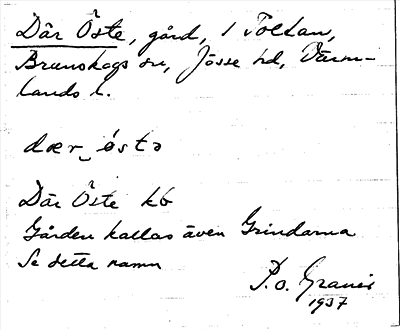 Där Öste, gård, 1 Toltan,
Brunskogs sn, Jösse hd, Värm-
lands l.
dær_östə
Där Öste kb
Gården kallas även Grindarna
Se detta namn
P.O. Graner
1937